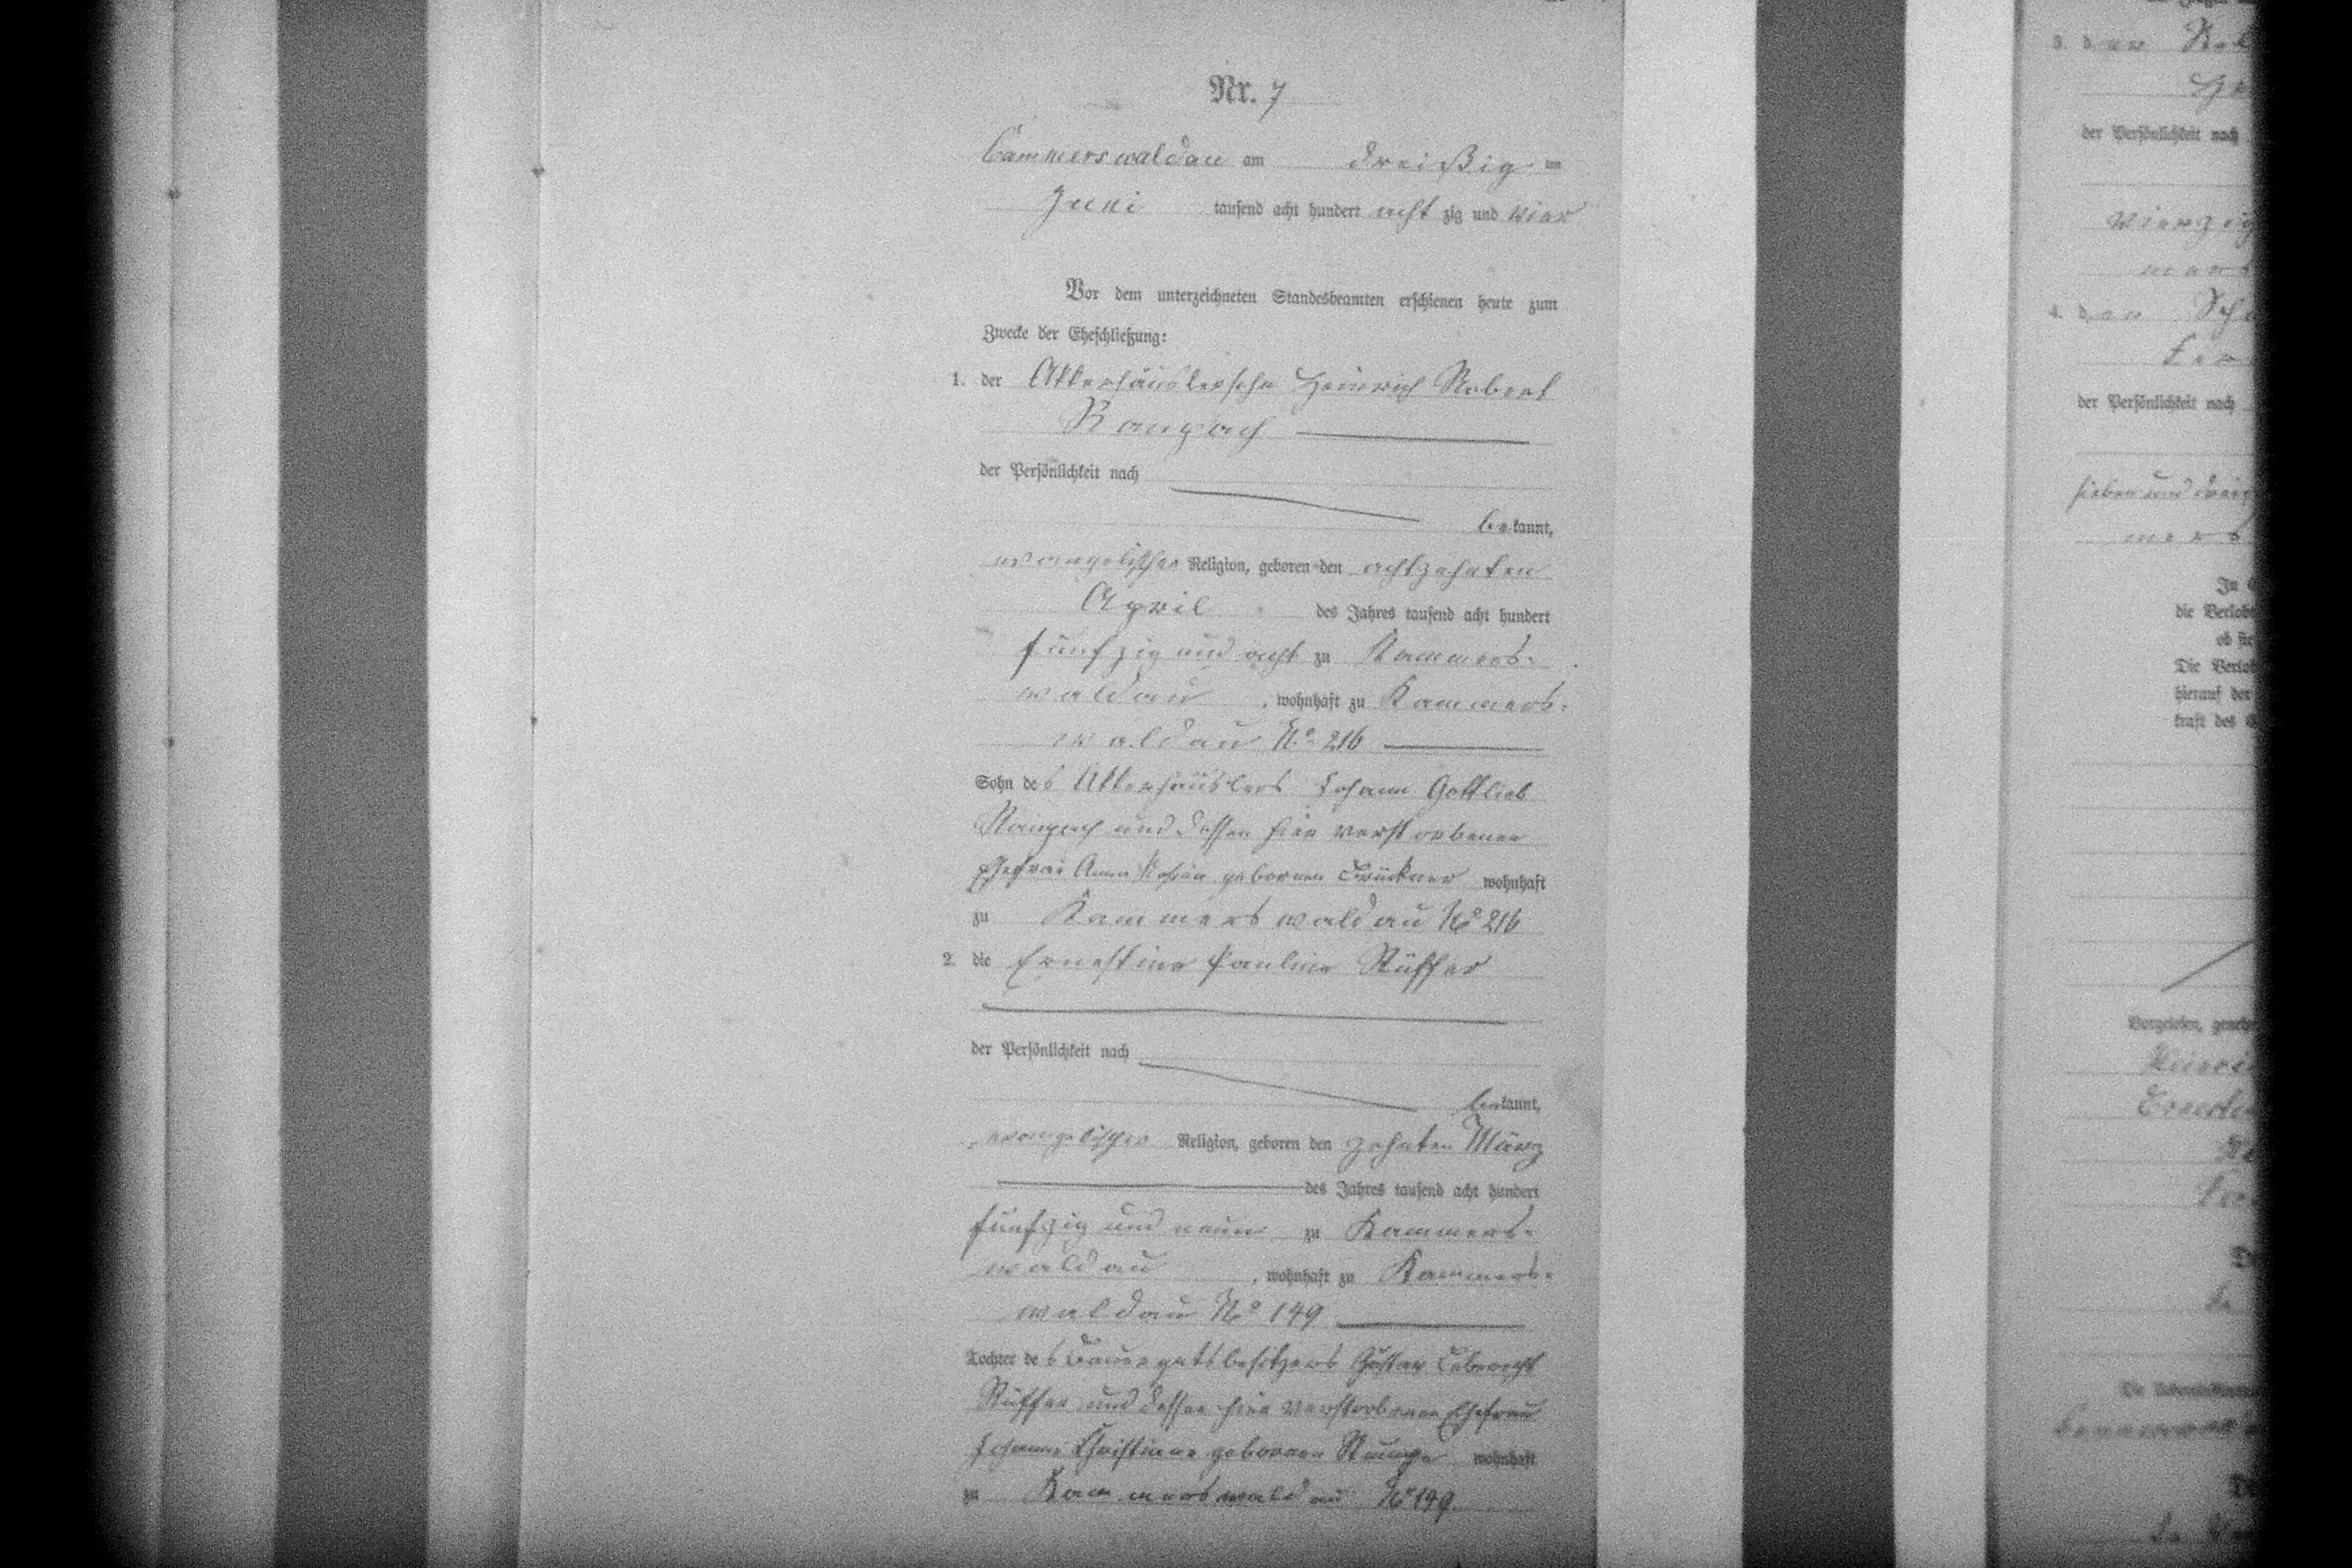 Nr. 7
Cammerswaldau am dreißig ten
Juni tausend acht hundert acht zig und vier
Vor dem unterzeichneten Standesbeamten erschienen heute zum
Zwecke der Eheschließung:
1. der Ackerhäuslersohn Heinrich Robert
Raupach
der Persönlichkeit nach
bekannt,
evangelischer Religion, geboren den achtzehnten
April des Jahres tausend acht hundert
fünfzig und acht zu Kammers-
waldau, wohnhaft zu Kammers-
waldau No 216
Sohn des Ackerhäuslers Johann Gottlieb
Raupach und dessen hier verstorbenen
Ehefrau Anna Rosina gebornen Brückner wohnhaft
zu Kammerswaldau No 216
2. die Ernestine Pauline Rüffer
der Persönlichkeit nach
bekannt,
evangelischer Religion, geboren den zehnten März
des Jahres tausend acht hundert
fünfzig und neun zu Kammers-
waldau, wohnhaft zu Kammers-
waldau No 149
Tochter des Bauergutsbesitzers Gustav Leberecht
Rüffer und dessen hier verstorbenen Ehefrau
Johanne Christiane gebornen wohnhaft
zu Kammerswaldau No 149.
3. der
der Persönlichkeit nach
vierzig
4. der
der Persönlichkeit nach
sieben und
die
ob sie
Die
hierauf der
kraft des